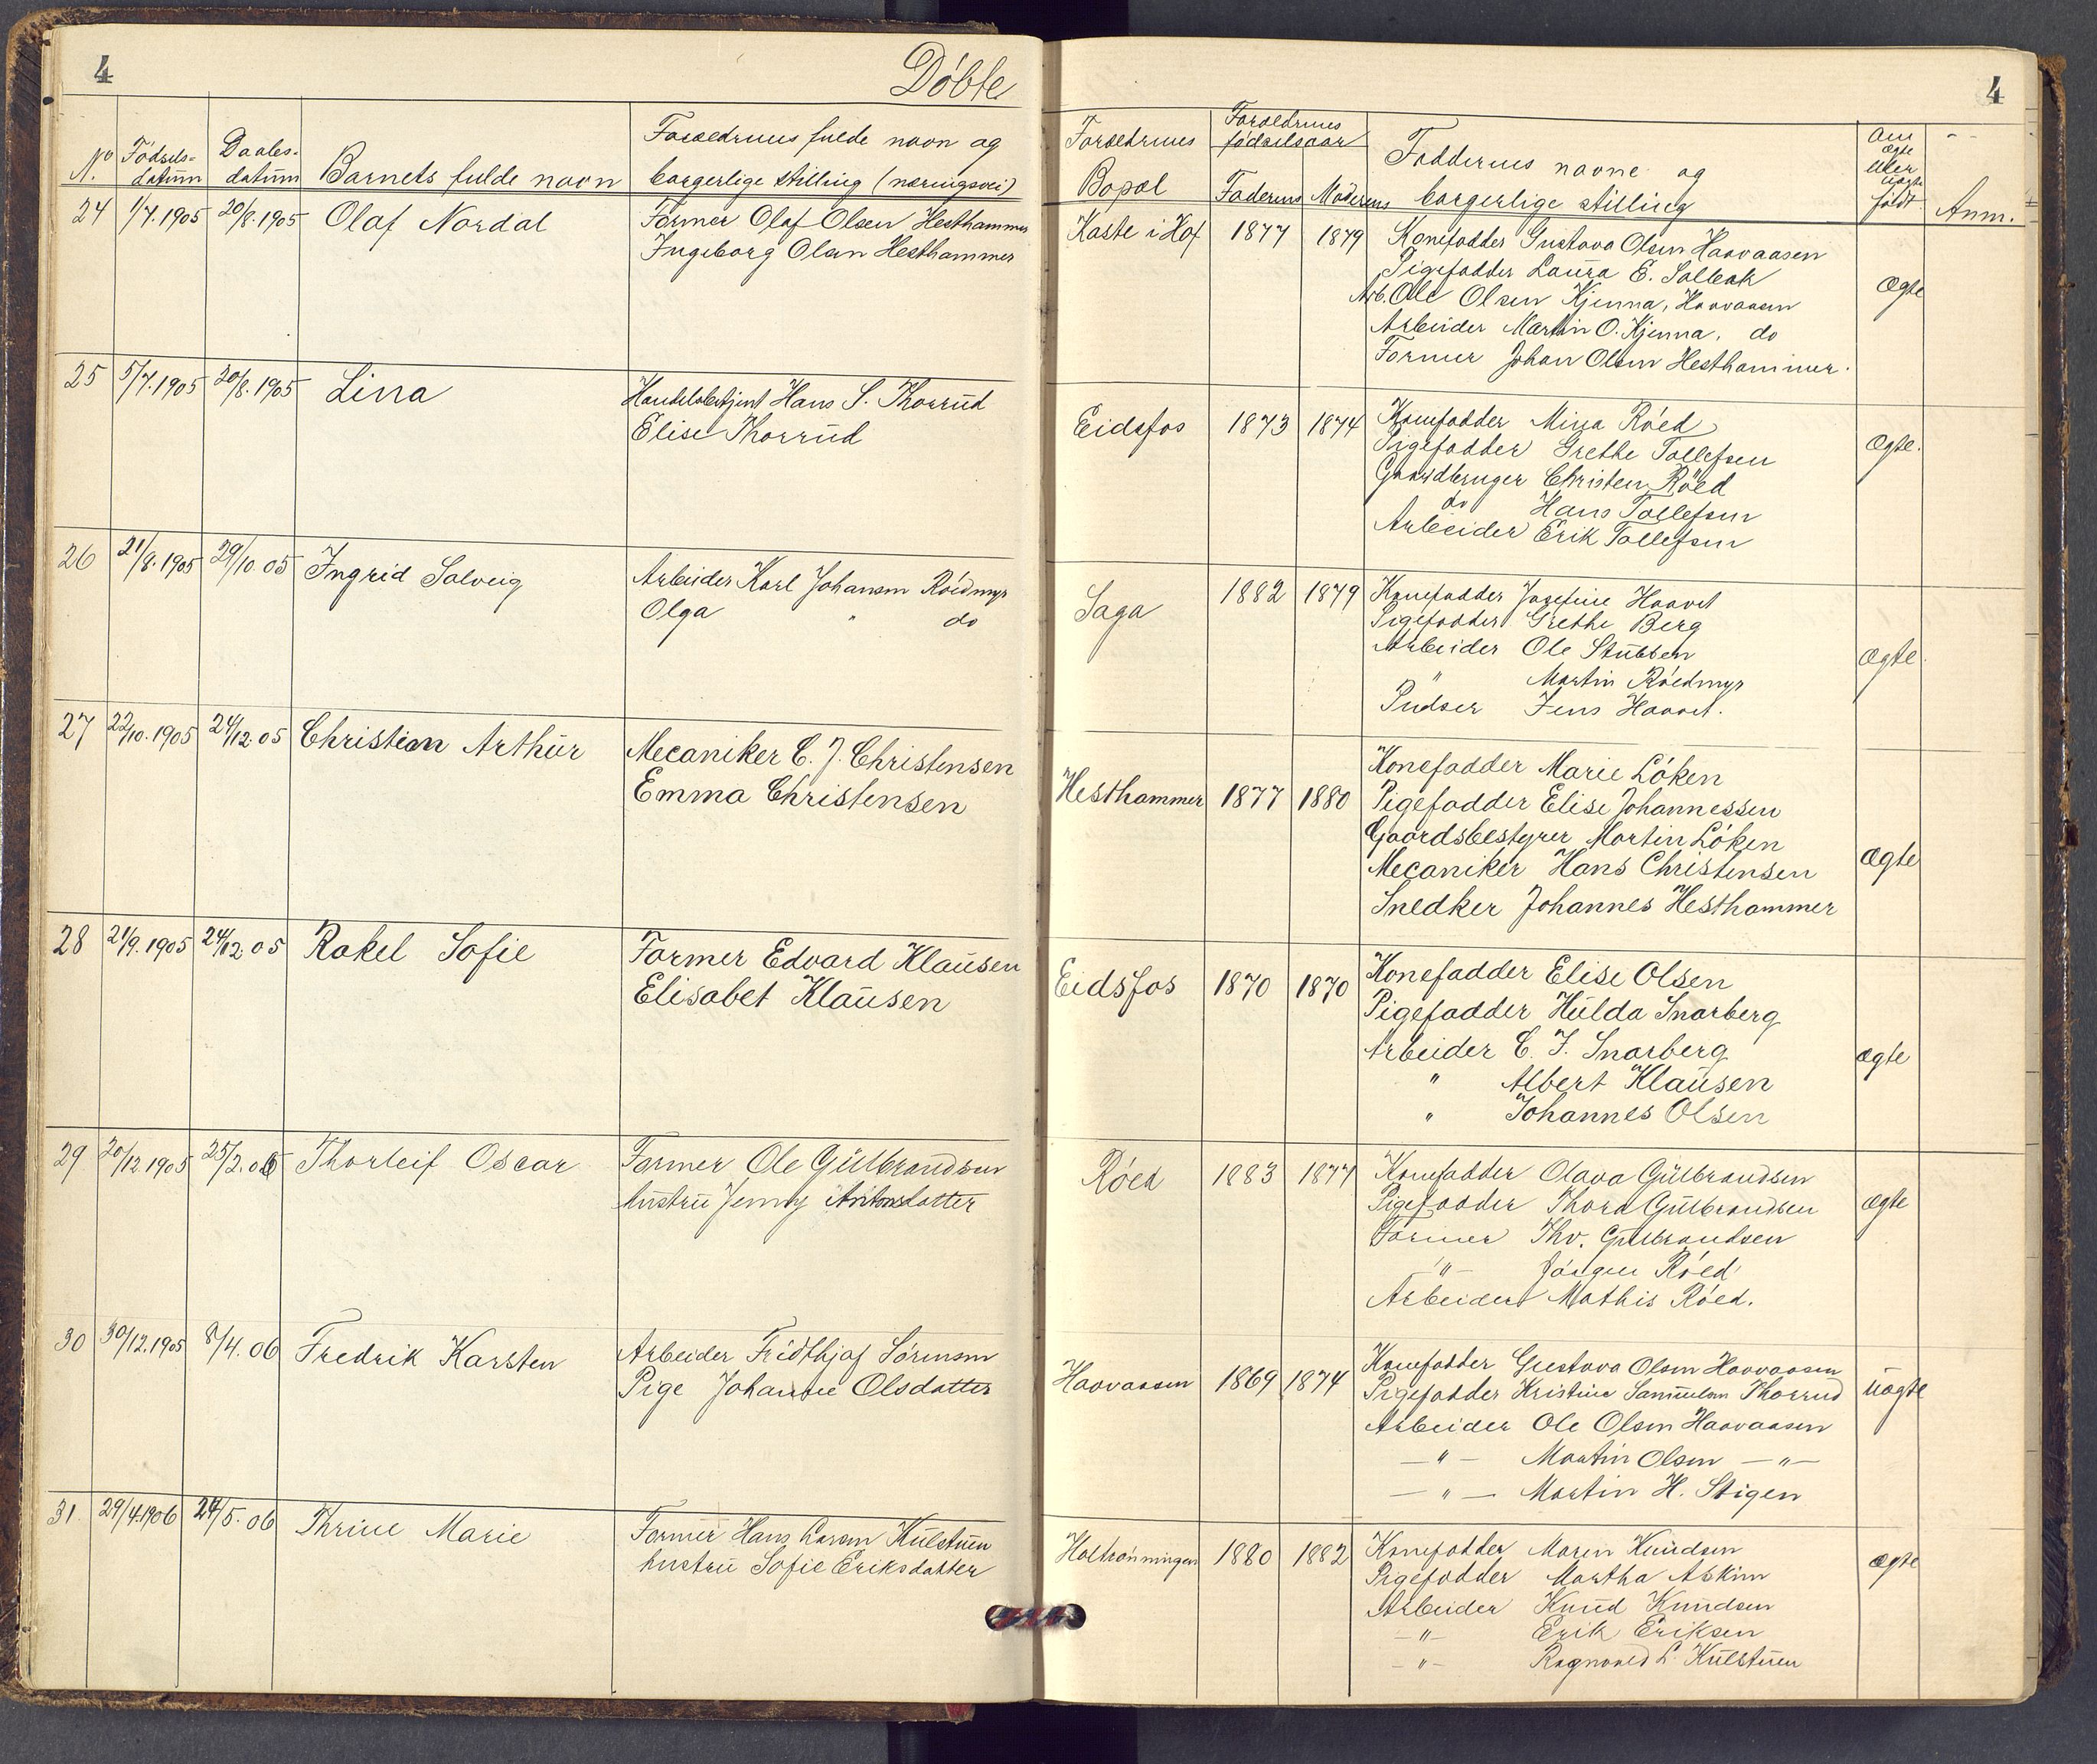 4
Döbte
No
N.
Födsels-
datum
Daabs-
datum
Barnets fulde navn
Foraeldrenes fulde navn og
borgerlige stilling (næringsvei)
24 1/7.1905 20/8.1905 Olaf Nordal
Former Olaf Olsen Hesthammer
Ingeborg Olsen Hesthammer
25 5/7.1905 20/8.1905 Lina
Handelsbetjent Hans S. Thorrud
Elise Thorrud
26 21/8.1905 29/10.05 Ingrid Solveig
Arbeider Karl Johansen Röedmyr
Olga " do
27 22/10.1905 24/12.05 Christian Arthur
Mecaniker C. J. Christensen
Emma Christensen
28 21/9.1905 24/12.05 Rakel Sofie
Former Edvard Klausen
Elisabet Klausen
29 20/12.1905 25/2.06 Thorleif Oscar
Former Ole Gulbrandsen
hustru Jenny Antonsdatter
30 30/12.1905 8/4.06 Fredrik Karsten
Arbeider Fridthjof Sörensen
Pige Johanne Olsdatter
31. 29/4.1906 24/5.06 Thrine Marie
Former Hans Larsen Kulstuen
hustru Sofie Eriksdatter
4
Foraeldrenes
Bopæl
Foraeldrenes
födselsaar
Faderens Moderens
Faddernes navne og
borgerlige stilling
Om
ægte
eller
uægte
födt.
Anm.
Kaste i Hof 1877 1879 Konefadder Gustava Olsen Haavaasen
Pigefadder Laura E. Solbak
Arb. Ole Olsen Kjenna, Haavaasen
Arbeider Martin O. Kjenna, do
Former Johan Olsen Hesthammer.
Ægte
Eidsfos 1873 1874 Konefadder Mina Röed
Pigefadder Grethe Tollefsen
Gaardbruger Christen Röed
do Hans Tollefsen
Arbeider Erik Tollefsen
Ægte.
Saga 1882 1879 Konefadder Josefine Haavet
Pigefadder Grethe Berg
Arbeider Ole Stubben
" Martin Röedmyr
Pudser Jens Haavet.
Ægte.
Hesthammer 1877 1880 Konefadder Marie Löken
Pigefadder Elise Johannessen
Gaardsbestyrer Martin Löken
Mecaniker Hans Christensen
Snedker Johannes Hesthammer
Ægte
Eidsfos 1870 1870 Konefadder Elise Olsen
Pigefadder Hulda Snarberg
Arbeider C. J. Snarberg
" Albert Klausen
" Johannes Olsen
ægte
Röed 1883 1877 Konefadder Olava Gulbrandsen
Pigefadder Thora Gulbrandsen
Former Thv. Gulbrandsen
-"- Jörgen Röed
Arbeider Mathis Röed.
ægte
Haavaasen 1869 1874 Konefadder Gustava Olsen Haavaasen
Pigefadder Kristine Samuelsen Thorrud
Arbeider Ole Olsen Haavaasen
-"- Martin Olsen -"-
-"- Martin H. Stigen
uægte
Holtrønningen 1880 1882 Konefadder Maren Knudsen
Pigefadder Martha Askim
Arbeider Knud Knudsen
-"- Erik Eriksen
-"- Ragnvald L. Kulstuen
ægte